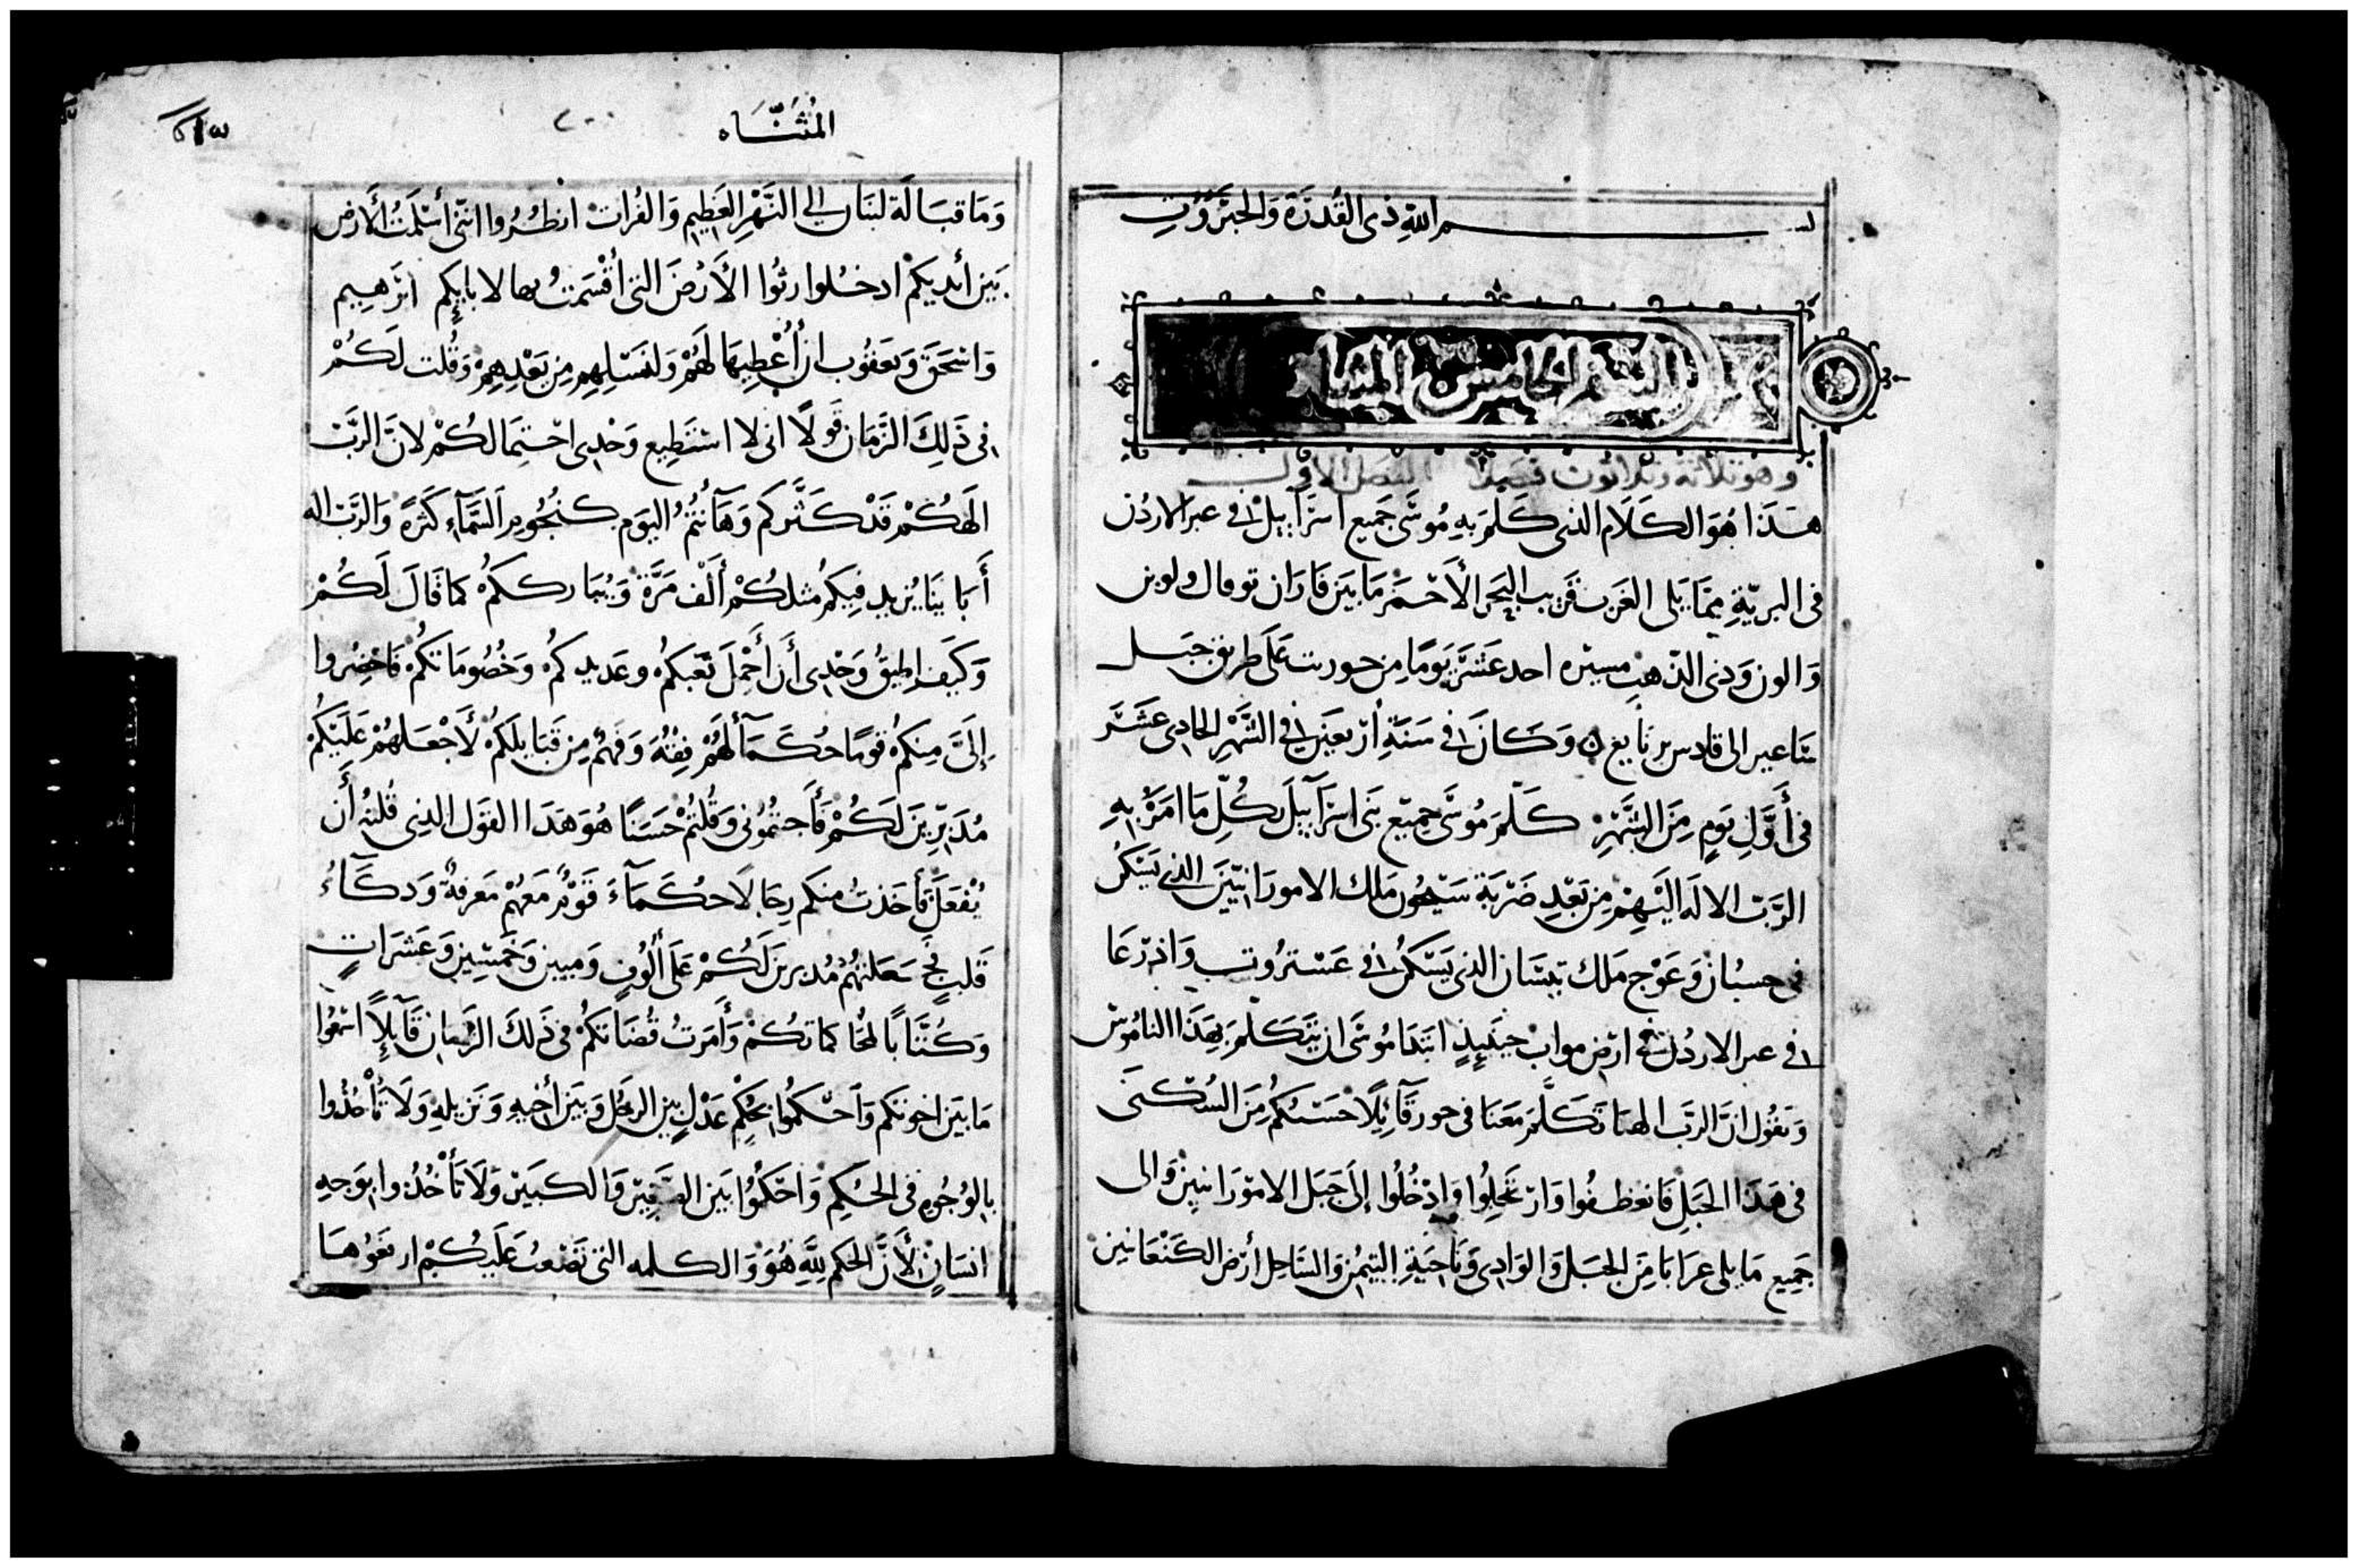 بسم الله ذى القدرة والجبروت
السفر الخامس المثناه
وهو ثلاثة وثلاثون فصلا الفصل الاول
هذا هو الكلام الذى كلم به موسى جميع اسرآييل فى عبر الاردن
فى البرية مما يلى الغرب قريب البحر الأحمر ما بين فاران توفال ولوبن
والون وذى الذهب مسيره احد عشر يوما من حوريب على طريق جبل
ساعير الى قادس برنايع وكان فى سنة أربعين فى الشهر الحادى عشر
فى أول يوم من الشهر كلم موسى جميع بنى اسرآييل بكل ما امر به
الرب الاله اليهم من بعد ضربة سيحون ملك الامورانيين الذى يسكن
فى حسبان وعوج ملك بيسان الذى يسكن فى عستروت واذرعا
فى عبر الاردن فى ارض مواب حينيذ ابتدا موسى ان يتكلم بهذا الناموس
ويقول ان الرب الهنا تكلم معنا فى حوريب قآئلا حسبكم من السكنى
فى هذا الجبل فانعطفوا وارتحلوا وادخلوا إلى جبل الامورانيين والى
جميع ما يلى عرابا من الجبل والوادى وناحية التيمن والساحل أرض الكنعانين
المثناه
٢٠٠
وما قبالة لبنان الى النهر العظيم والفرات انظروا اننى أسلمت الأرض
بين أيديكم ادخلوا رثوا الأرض التى أقسمت بها لابايكم ابرهيم
واسحق ويعقوب ان أعطيها لهم ولنسلهم من بعدهم وقلت لكم
فى ذلك الزمان قولا انى لا استطيع وحدى احتمالكم لان الرب
الهكم قد كثركم وهآنتم اليوم كنجوم السمآء كثرة والرب اله
أباينا يزيد فيكم مثلكم ألف مرة ويبارككم كما قال لكم
وكيف اطيق وحدى أن أحمل تعبكم وعديدكم وخصوماتكم فاحضروا
إلى منكم قوما حكمآ لهم فقه وفهم من قبايلكم لأجعلهم عليكم
مدبرين لكم فأجبتمونى وقلتم حسنا هو هذا القول الذى قلته أن
يفعل فأخذت منكم رجالا حكمآء قوم معهم معرفة وذكآء
قلب فجعلتهم مدبرين لكم على ألوف وميين وخمسين وعشرات
وكتابا لمحاكماتكم وأمرت قضاتكم فى ذلك الزمان قآيلا اسمعوا
ما بين اخوتكم واحكموا بحكم عدل بين الرجل وبين أخيه ونزيله ولا تأخذوا
بالوجوه فى الحكم واحكموا بين الصغير والكبير ولا تأخذوا بوجه
انسان لأن الحكم لله هو والكلمه التى تصعب عليكم ارفعوها